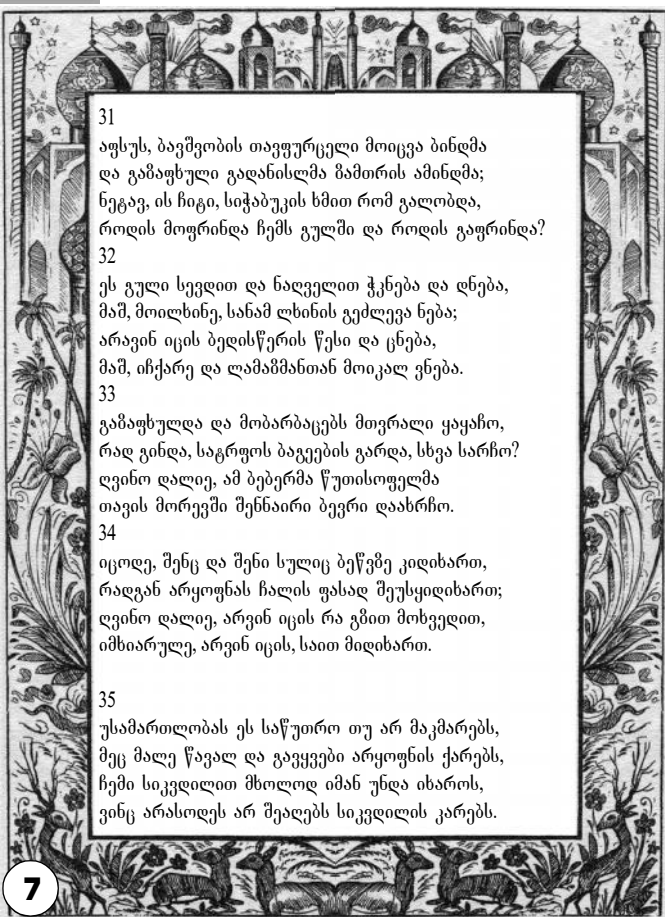 31
აფსუს, ბავშვობის თავფურცელი მოიცვა ბინდმა
და გაზაფხული გადანისლმა ზამთრის ამინდმა;
ნეტავ, ის ჩიტი, სიჭაბუკის ხმით რომ გალობდა,
როდის მოფრინდა ჩემს გულში და როდის გაფრინდა?
32
ეს გული სევდით და ნაღველით ჭკნება და დნება,
მაშ, მოილხინე, სანამ ლხინის გეძლევა ნება;
არავინ იცის ბედისწერის წესი და ცნება,
მაშ, იჩქარე და ლამაზმანთან მოიკალ ვნება.
33
გაზაფხულდა და მობარბაცებს მთვრალი ყაყაჩო,
რად გინდა, სატრფოს ბაგეების გარდა, სხვა სარჩო?
ღვინო დალიე, ამ ბებერმა წუთისოფელმა
თავის მორევში შენნაირი ბევრი დაახრჩო.
34
იცოდე, შენც და შენი სულიც ბეწვზე კიდიხართ,
რადგან არყოფნას ჩალის ფასად შეუსყიდიხართ;
ღვინო დალიე, არვინ იცის რა გზით მოხვედით,
იმხიარულე, არვინ იცის, საით მიდიხართ.
35
უსამართლობას ეს საწუთრო თუ არ მაკმარებს,
მეც მალე წავალ და გავყვები არყოფნის ქარებს,
ჩემი სიკვდილით მხოლოდ იმან უნდა იხაროს,
ვინც არასოდეს არ შეაღებს სიკვდილის კარებს.
7